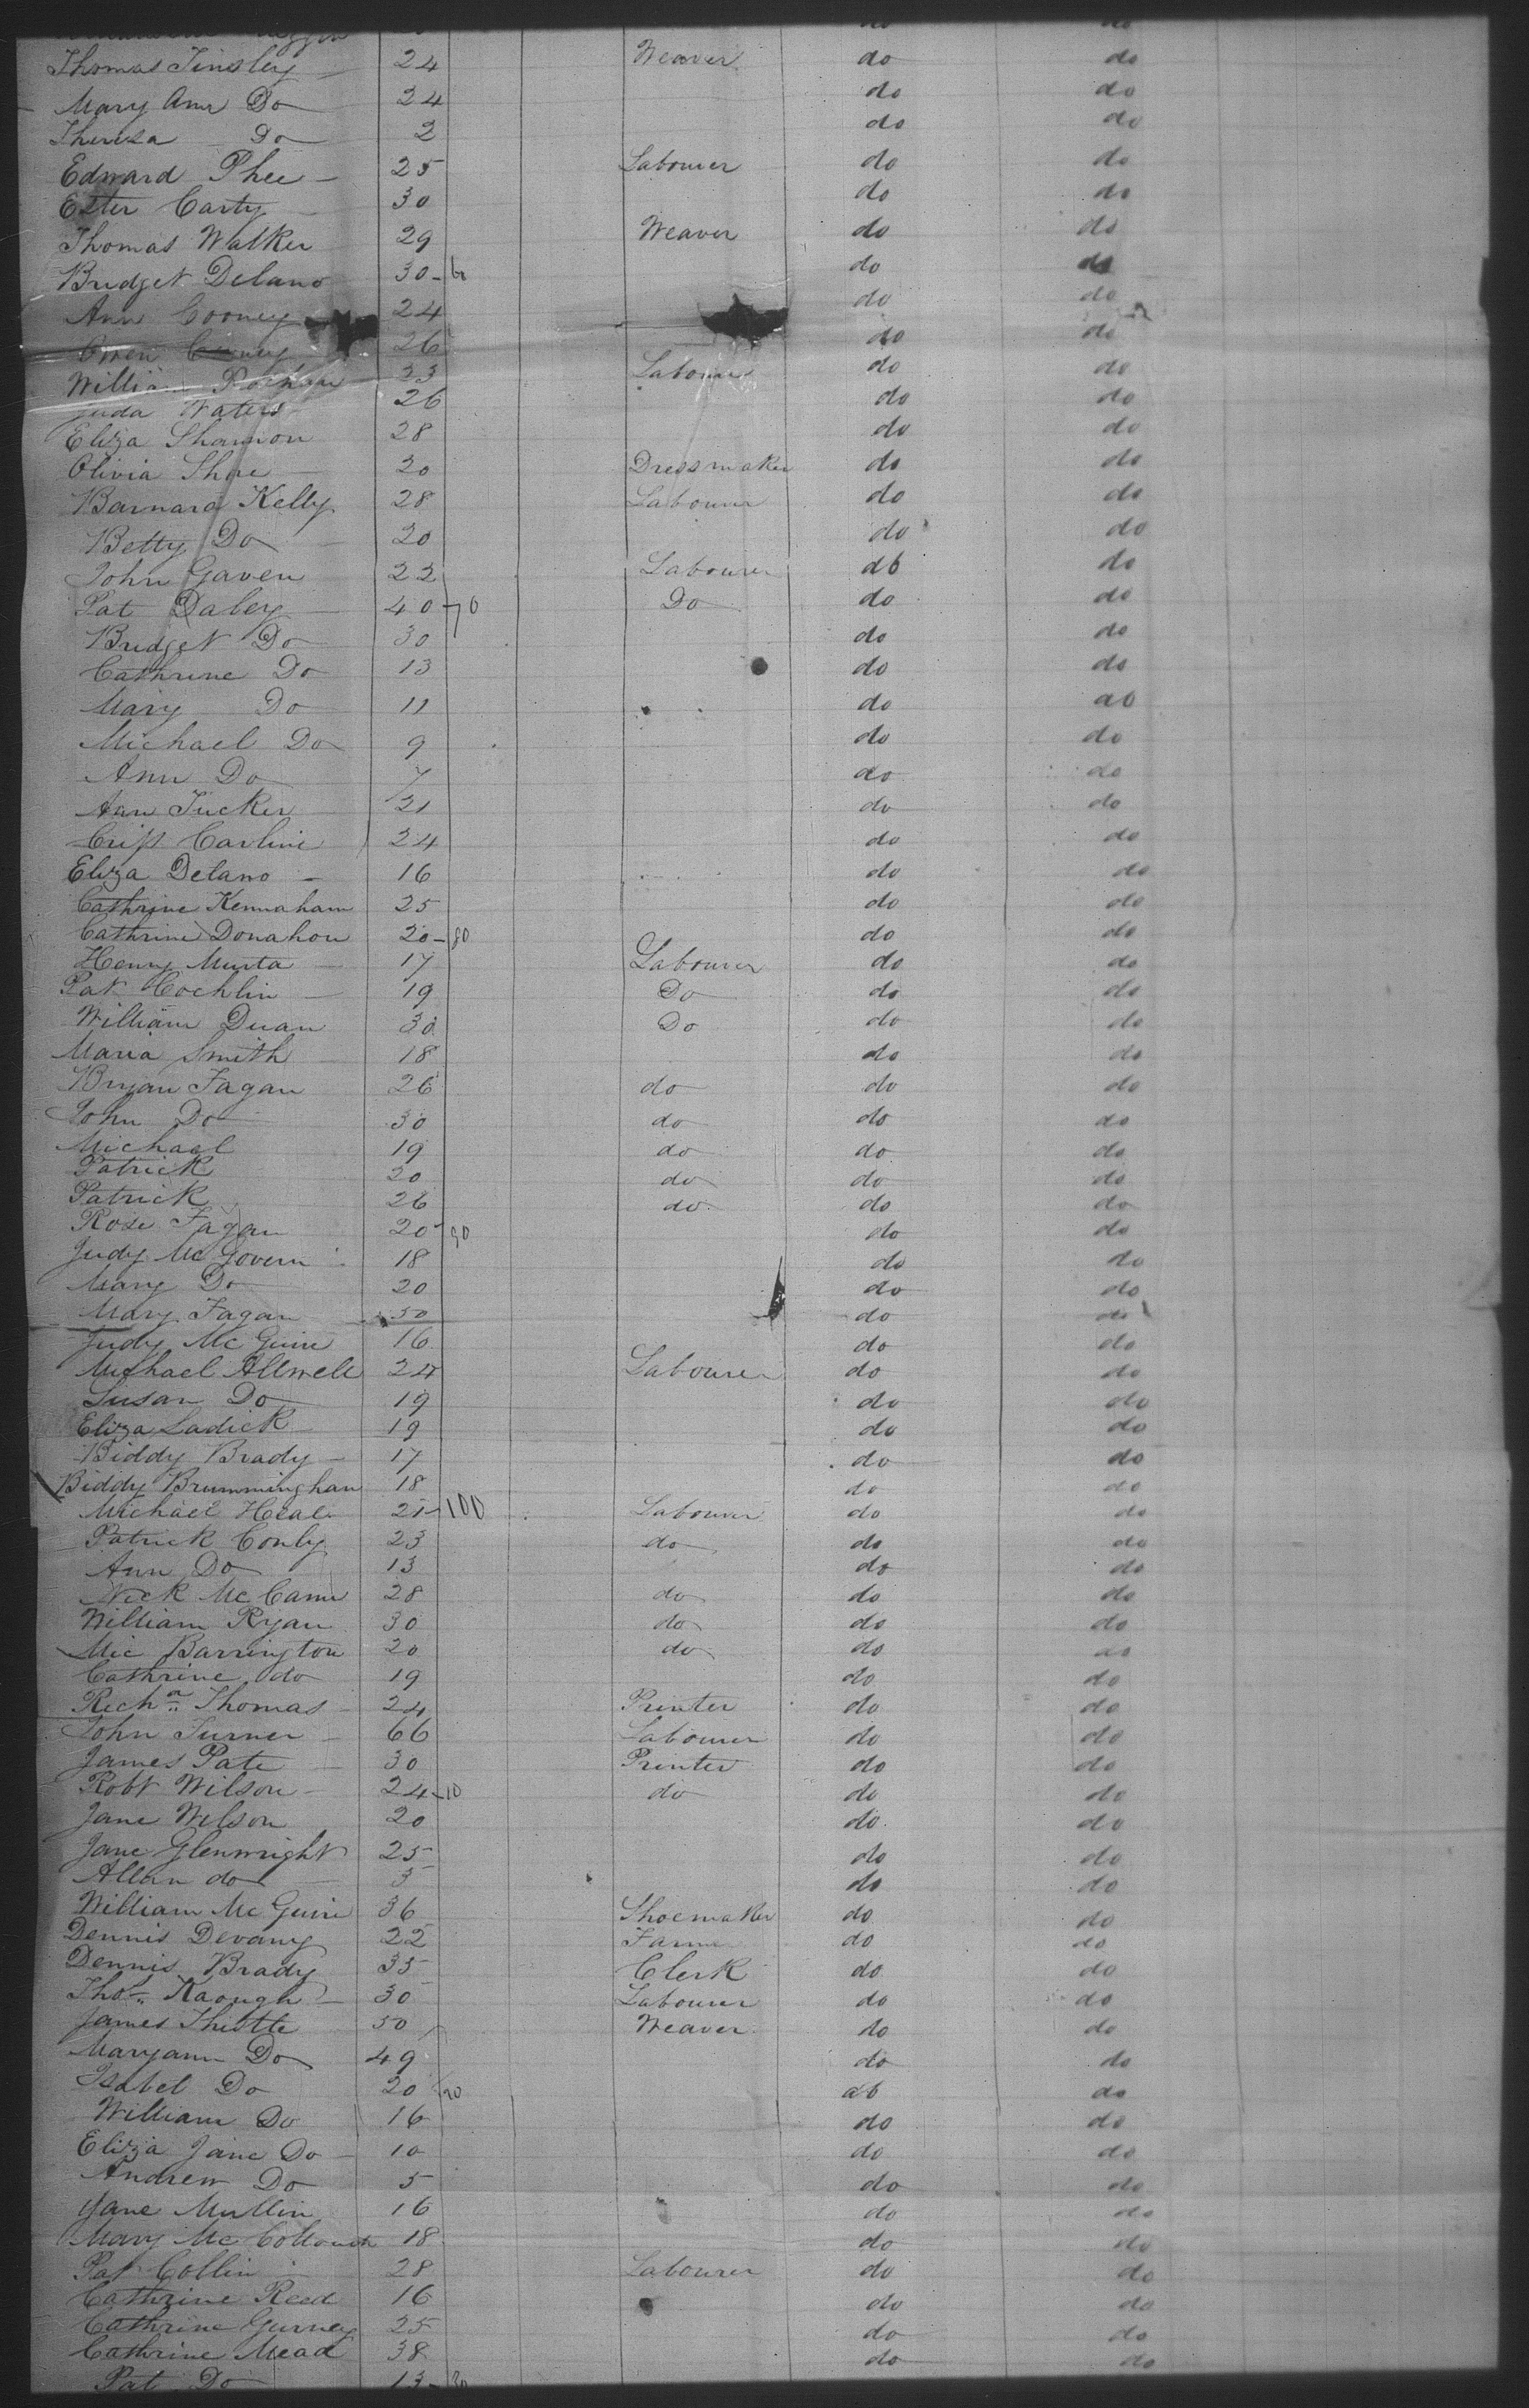 do do
Thomas Tinsley 24 Weaver do do
Mary Ann Do 24 do do
Theresa Do 2 do do
Edward Phee 25 Labourer do do
Ester Carty 30 do do
Thomas Walker 29 Weaver do do
Bridget Delano 30 - 60 do do
Ann Cooney 24 do do
Owen 26 do do
William 23 Labourer do do
Juda Waters 26 do do
Eliza Shannon 28 do do
Olivia Shore 20 Dressmaker do do
Barnard Kelly 28 Labourer do do
Betty Do 20 do do
John Gaven 22 Labourer do do
Pat Daley 40 - 70 Do do do
Bridget Do 30 do do
Cathrine Do 13 do do
Mary Do 11 do do
Michael Do 9 do do
Ann Do 7 do do
Ann Tucker 21 do do
Carline 24 do do
Eliza Delano 16 do do
Cathrine Kennaham 25 do do
Cathrine Donahou 20 - 80 do do
Henry Murta 17 Labourer do do
Pat Cochlin 19 Do do do
William Duan 30 Do do do
Maria Smith 18 do do
Bryan Fagan 26 do do do
John Do 30 do do do
Michael 19 do do do
Patrick 20 do do do
Patrick 26 do do do
Rose Fagan 20 - 90 do do
Judy McGovern 18 do do
Mary Do 20 do do
Mary Fagan 50 do do
Judy McGuire 16 do do
Michael Allwell 24 Labourer do do
Susan Do 19 do do
Eliza Ladick 19 do do
Biddy Brady 17 do do
Biddy Brumminghan 18 do do
Michael 21 - 100 Labourer do do
Patrick Conly 23 do do do
Ann Do 13 do do
Nick McCann 28 do do do
William Ryan 30 do do do
Mic Barrington 20 do do do
Cathrine do 19 do do
Thomas 24 Printer do do
John Turner 66 Labourer do do
James Pate 30 Printer do do
Robt Wilson 24 - 10 do do do
Jane Wilson 20 do do
Jane Glenwright 25 do do
Allan do 3 do do
William McGuire 36 Shoemaker do do
Dennis Devany 22 Farmer do do
Dennis Brady 35 Clerk do do
Thos Kaough 30 Labourer do do
James Thistle 50 Weaver do do
Maryann Do 49 do do
Isabel Do 20 20 do do
William Do 16 do do
Eliza Jane Do 10 do do
Andrew Do 5 do do
Jane Mullin 16 do do
Mary McCollouch 18 do do
Pat Collin 28 Labourer do do
Cathrine Reed 16 do do
Cathrine Gurney 25 do do
Cathrine Mead 38 do do
Pat Do 13 - 30